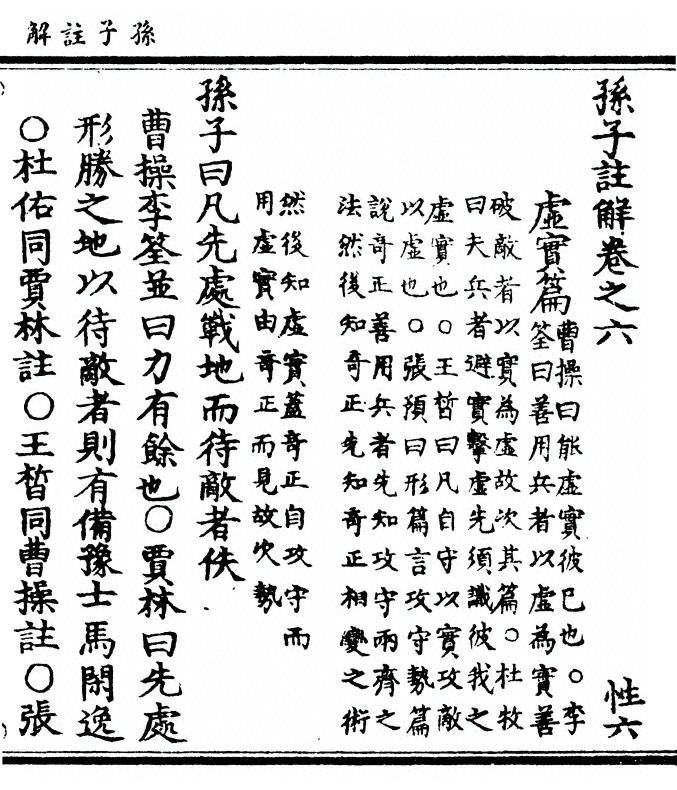 孫子註解
孫子註解卷之六 性六
虛實篇
曹操曰能虛實彼己也○李
筌曰善用兵者以虛為實善
破敵者以實為虛故次其篇○杜牧
曰夫兵者避實擊虛先須識彼我之
虛實也○王晳曰凡自守以實攻敵
以虛也○張預曰形篇言攻守勢篇
說奇正善用兵者先知攻守兩齊之
法然後知奇正先知奇正相變之術
然後知虛實蓋奇正自攻守而
用虛實由奇正而見故次勢
孫子曰凡先處戰地而待敵者佚
曹操李筌並曰力有餘也○賈林曰先處
形勝之地以待敵者則有備豫士馬閑逸
○杜佑同賈林註○王晳同曹操註○張